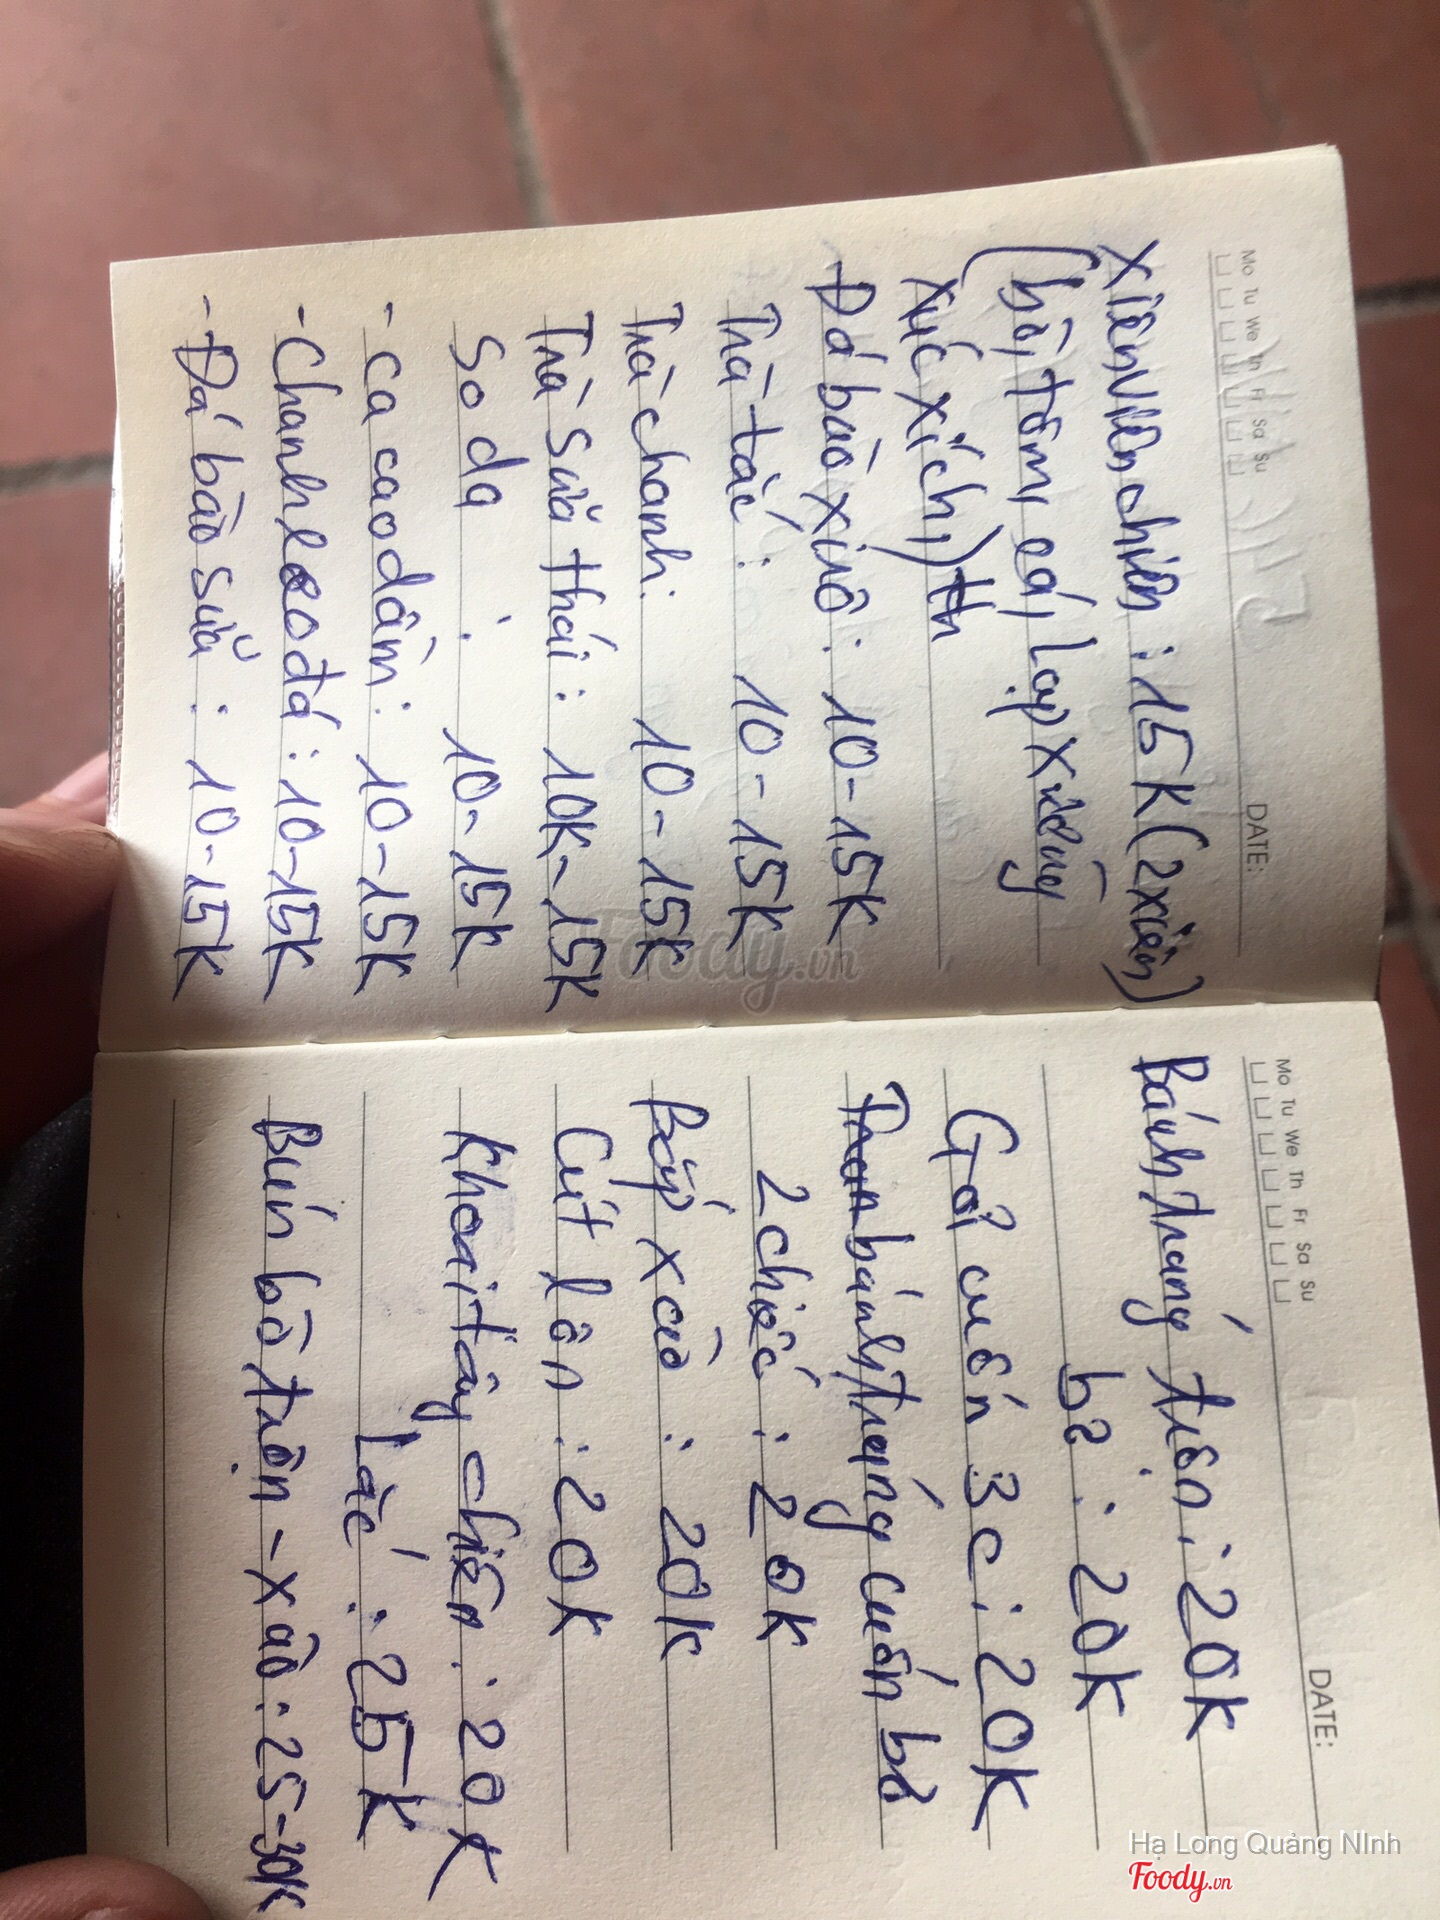 Mo Tu We Th Fr Sa Su
DATE:
Xiên viên chiên : 15K (2 xiên)
(bò, tôm, cá, lạp xưởng
xúc xích,) th
Đá bào xiuô : 10-15K
Trà tắc : 10-15K
Trà chanh: 10-15K
Trà sữa thái : 10K-15K
Soda : 10-15K
- Ca cao dầm : 10-15K
- Chanh leo đá : 10-15K
- Đá bào sữa : 10-15K
Mo Tu We Th Fr Sa Su
DATE:
Bánh tráng trộn : 20K
bơ : 20K
Gỏi cuốn 3c : 20K
bánh tráng cuốn bơ
2 chiếc : 20K
Bắp xào : 20K
Cút lộn : 20K
Khoai tây chiên : 20K
lắc : 25K
Bún bò trộn - xào : 25-30K
Foody.vn
Hạ Long Quảng NInh
Foody.vn